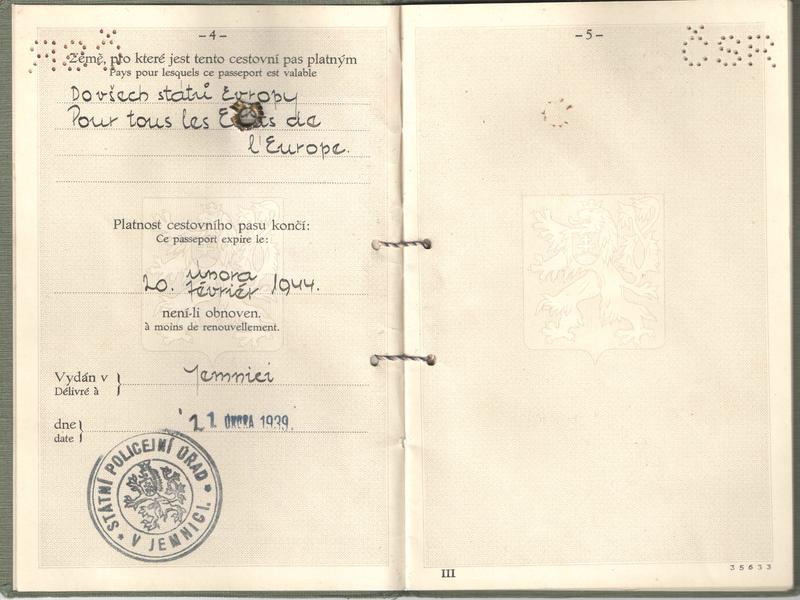 – 4 –
Země, pro které jest tento cestovní pas platným
Pays pour lesquels ce passeport est valable
Do všech statů Evropy
Pour tous les Etats de
l'Europe.
Platnost cestovního pasu končí:
Ce passeport expire le:
20. února
février 1944.
není-li obnoven.
à moins de renouvellement.
Vydán v
Délivré à
Jemnici
dne
date
21. ÚNORA 1939.
STÁTNÍ POLICEJNÍ ÚŘAD
V JEMNICI.
– 5 –
ČSR
III
35633